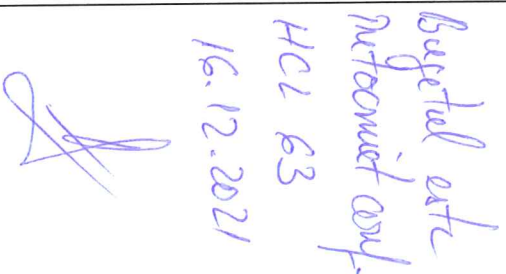 Bugetul este
întocmit conf.
HCL 63
16.12.2021